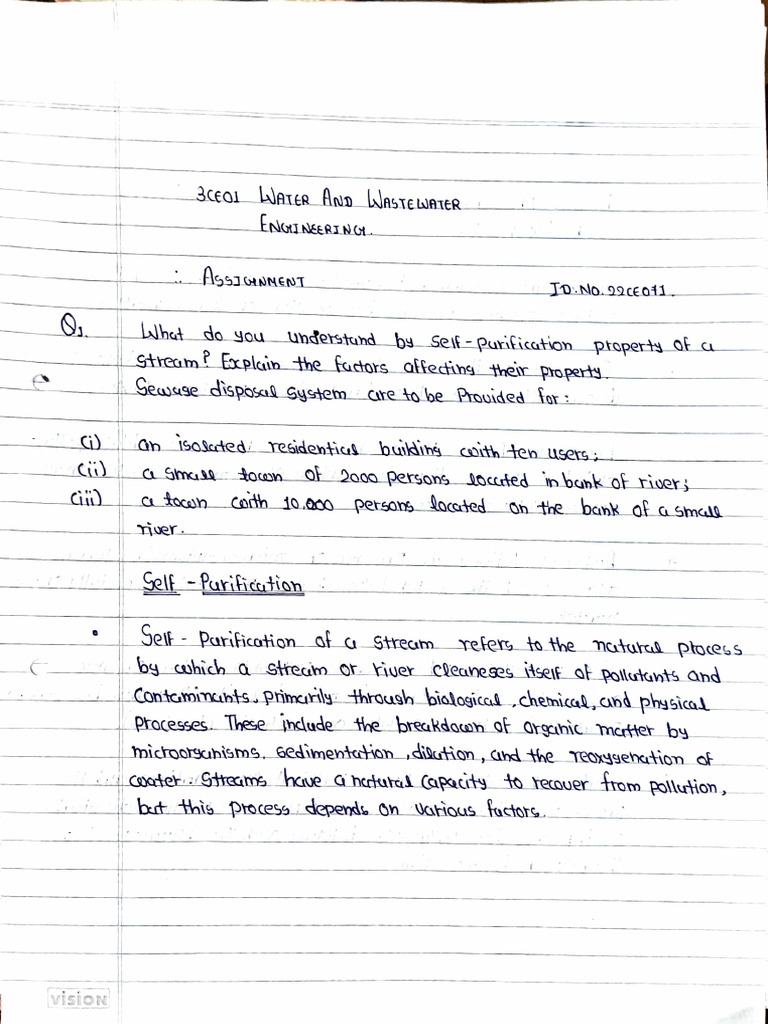 3CE01 WATER AND WASTEWATER
ENGINEERING.
: ASSIGNMENT
ID.NO. 22CE071.
Q1. What do you understand by self-purification property of a
stream? Explain the factors affecting their property.
Sewage disposal system are to be Provided for:
(i) an isolated residential building with ten users;
(ii) a small town of 2000 persons located in bank of river;
(iii) a town with 10.000 persons located on the bank of a small
river.
Self - Purification
• Self - Purification of a stream refers to the natural process
by which a stream or river cleaneses itself of pollutants and
Contaminants, primarily through biological, chemical, and physical
Processes. These include the breakdown of organic matter by
microorganisms, sedimentation, dilution, and the reoxygenation of
water. Streams have a natural capacity to recover from pollution,
but this process depends on various factors.
vision